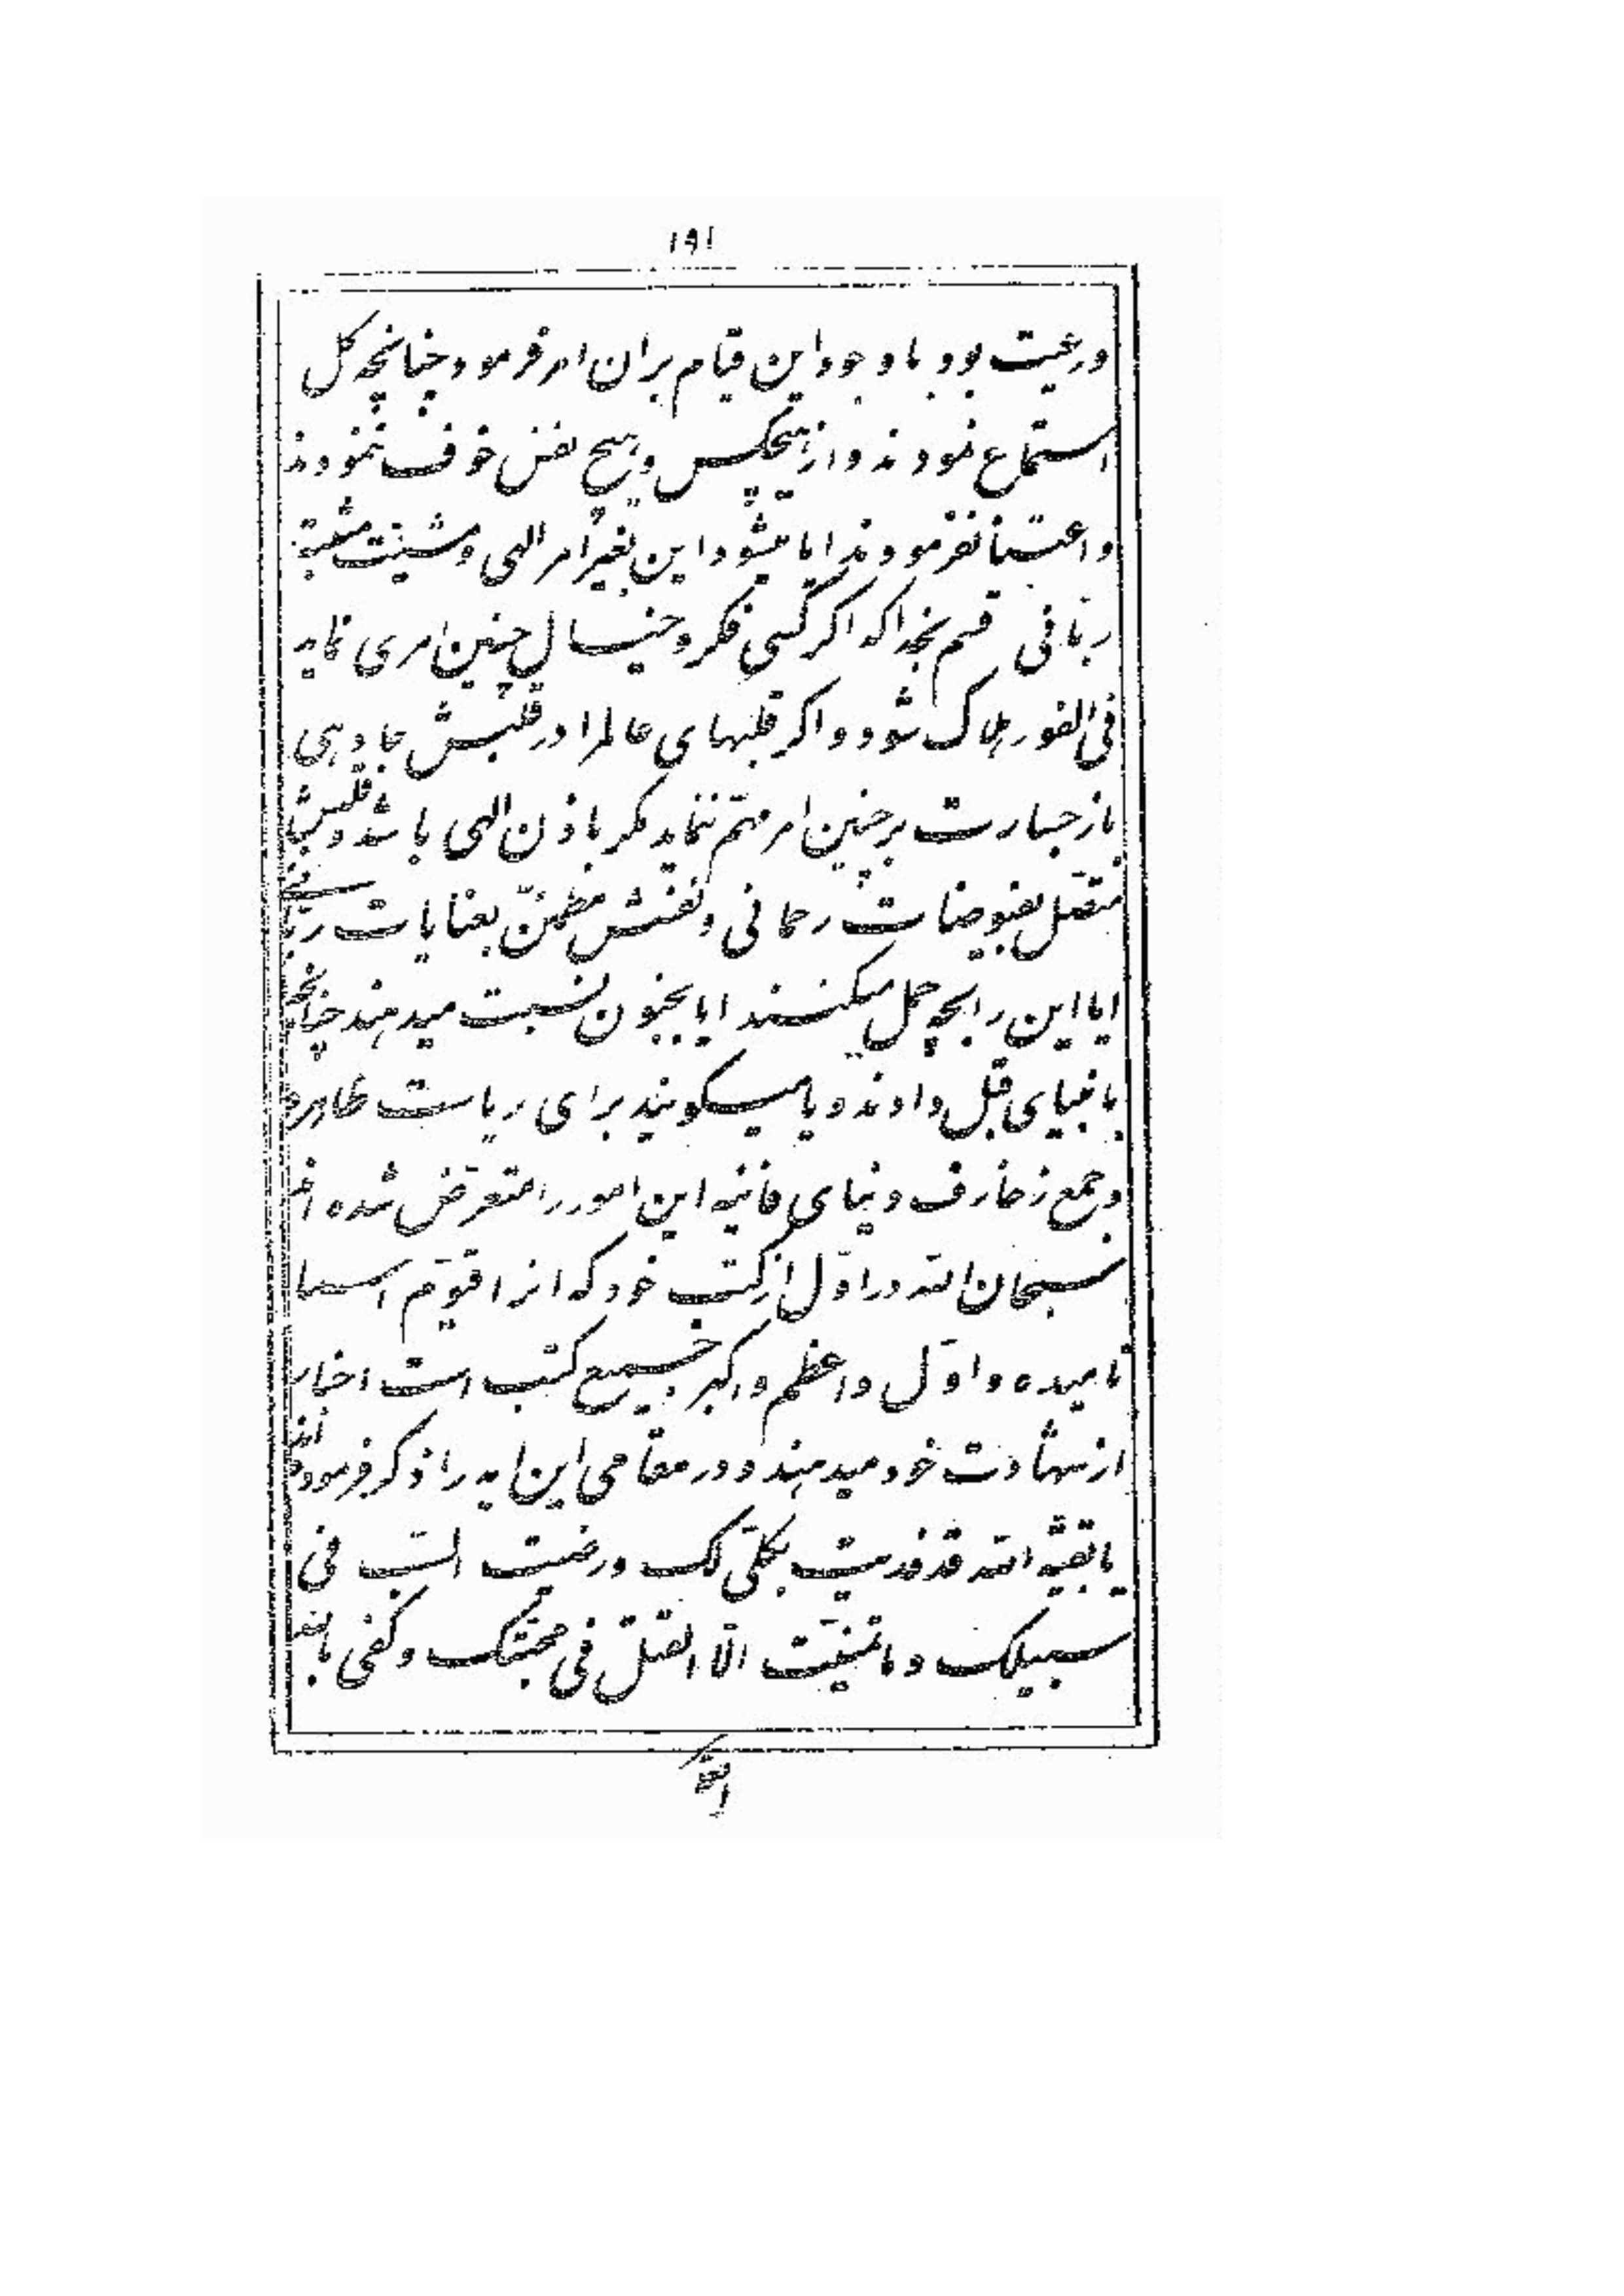 ١٩١
و رعیت بود با وجود این قیام بران امر فرمود چنانچه کل
استماع نمودند و از هیچکس و هیچ نفس خوف ننمودند
و اعتنا نفرمودند ایا میشود این بغیر امر الهی و مشیت مثبته
ربانی قسم بخدا که اکر کسی فکر و خیال چنین امری نماید
فی الفور هلاک شود و اکر قلبهای عالم را در قلبش جا دهی
باز جسارت بر چنین امر مهم ننماید مکر باذن الهی باشد و قلبش
متصل بفیوضات رحمانی و نفسش مطمئن بعنایات ربانی
ایا این را بچه حمل میکنند ایا بجنون نسبت میدهند چنانچه
بانبیای قبل دادند و یا میکویند برای ریاست ظاهره
و جمع زخارف دنیای فانیه این امور را متعرض شده اند
سبحان الله در اول از کتب خود که انرا قیوم اسما
نامیده و اول و اعظم و اکبر جمیع کتب است اخبار
از شهادت خود میدهند و در مقامی این ایه را ذکر فرموده اند
یا بقیة الله قد فدیت بکلی لک و رضیت السب فی
سبیلک و ما تمنیت الا القتل فی محبتک و کفی بالله